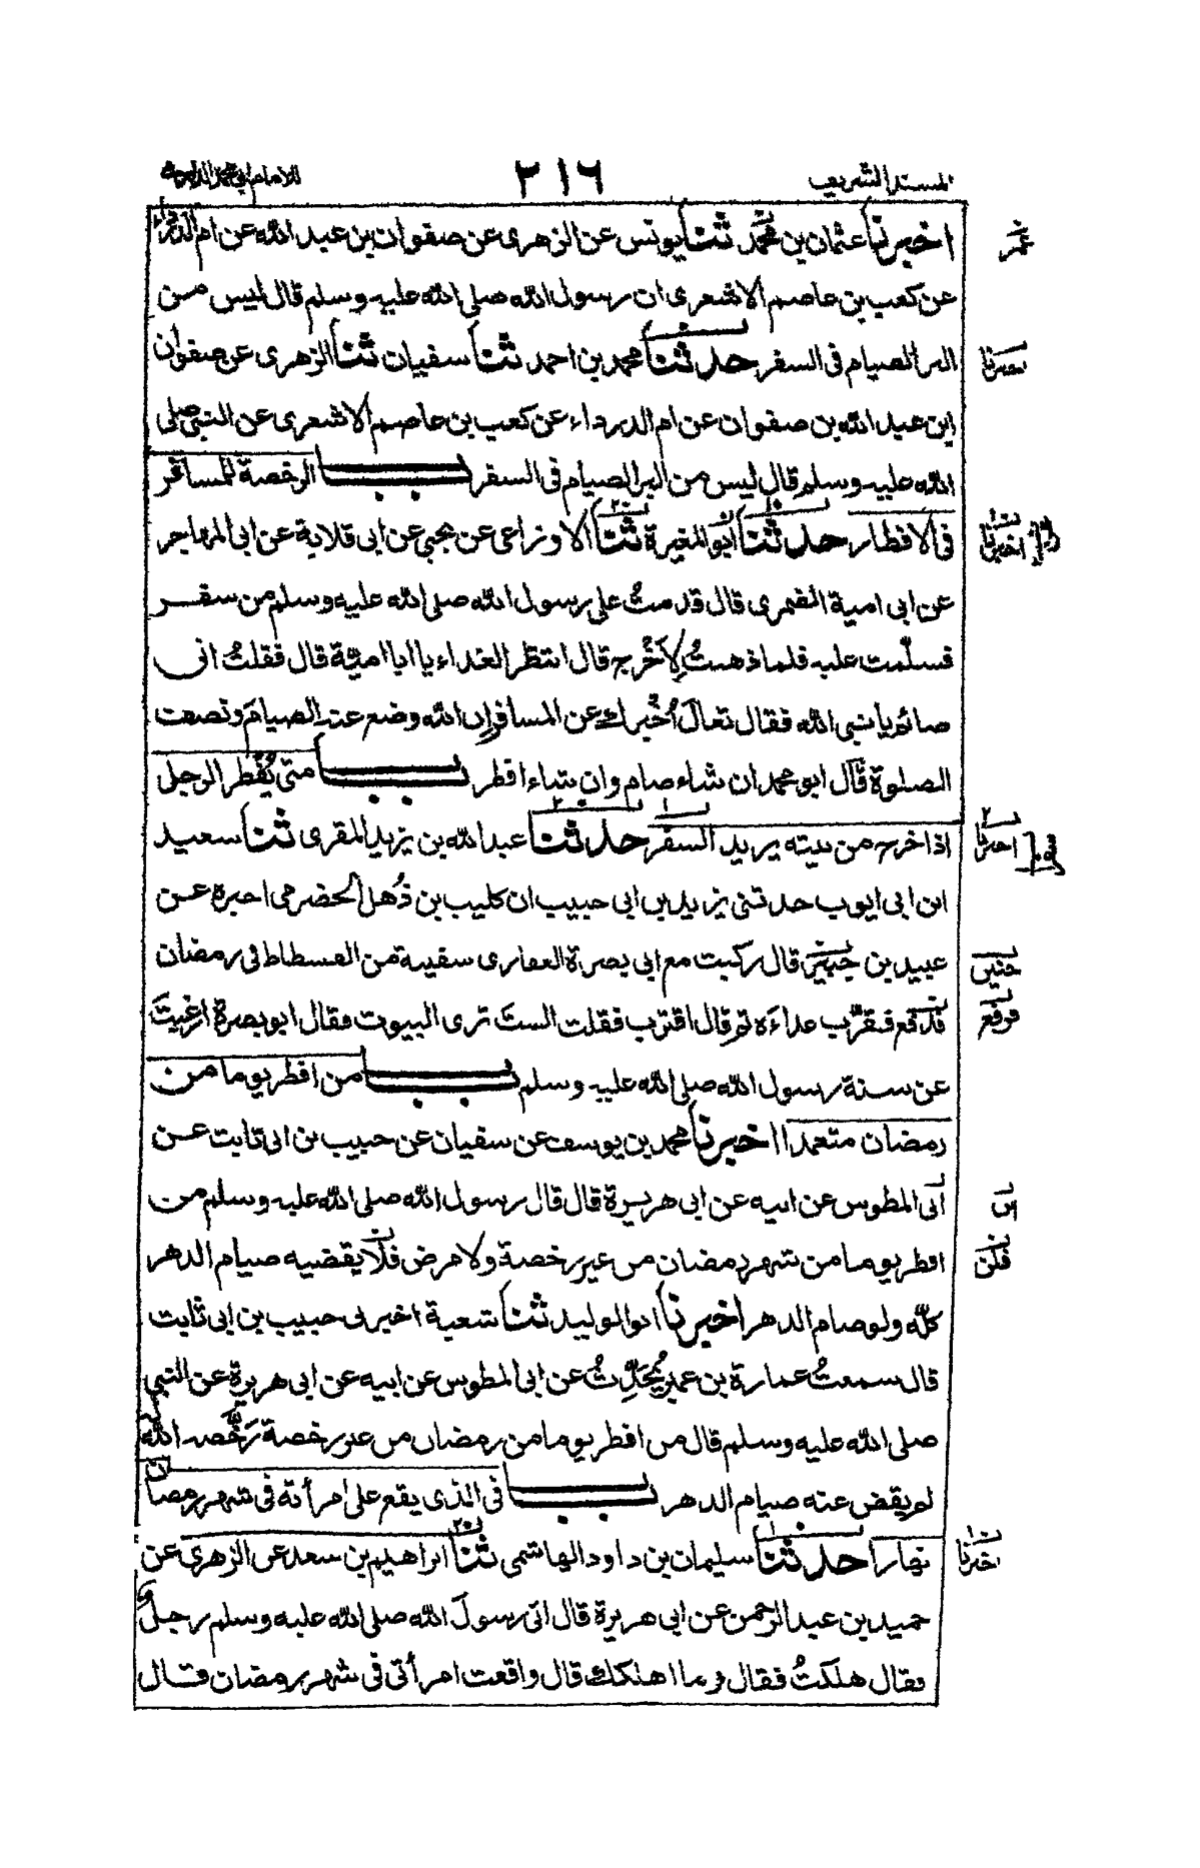 المسند الشريف ٢١٦ للامام ابي محمد الدارمي
اخبرنا عثمان بن محمد ثنا يونس عن الزهرى عن صفوان بن عبد الله عن ام الدرداء
عمر
عن كعب بن عاصم الاشعرى ان رسول الله صلى الله عليه وسلم قال ليس من
البر الصيام فى السفر حدثنا محمد بن احمد ثنا سفيان ثنا الزهرى عن صفوان
ابن عبد الله بن صفوان عن ام الدرداء عن كعب بن عاصم الاشعرى عن النبى صلى
الله عليه وسلم قال ليس من البر الصيام فى السفر بــاب الرخصة للمسافر
فى الافطار حدثنا ابو المغيرة ثنا الاوزاعى عن يحيى عن ابى قلابة عن ابى المهاجر
اخبرنا
عن ابى امية الضمرى قال قدمتُ على رسول الله صلى الله عليه وسلم من سفر
فسلّمت عليه فلما ذهبتُ لِاَخْرُج قال انتظر الغداء يا ابا اميّة قال فقلتُ انى
صائم يا نبى الله فقال تعالَ اُخْبِرك عن المسافر ان الله وضع عنه الصيامَ ونصف
الصلوة قال ابو محمد ان شاء صام وان شاء افطر بــاب متى يُفطر الرجل
اذا خرج من بيته يريد السفر حدثنا عبد الله بن يزيد المقرى ثنا سعيد
اخبرنا
ابن ابى ايوب حدثنى يزيد بن ابى حبيب ان كليب بن ذُهل الحضرمى اخبره عن
عبيد بن جبير قال ركبت مع ابى بصرة الغفارى سفينة من الفسطاط فى رمضان
حنين
فدفع فقرّب غداءَه ثم قال اقترب فقلت الستَ ترى البيوت فقال ابو بصرة ارغبتَ
فوقع
عن سنة رسول الله صلى الله عليه وسلم بــاب من افطر يوما من
رمضان متعمدا اخبرنا محمد بن يوسف عن سفيان عن حبيب بن ابى ثابت عن
ابى المطوس عن ابيه عن ابى هريرة قال قال رسول الله صلى الله عليه وسلم من
ابن
افطر يوما من شهر رمضان من غير رخصة ولا مرض فلا يقضيه صيام الدهر
فلن
كلّه ولو صام الدهر اخبرنا ابو الوليد ثنا شعبة اخبرنى حبيب بن ابى ثابت
قال سمعتُ عمارة بن عمير يُحَدِّثُ عن ابى المطوس عن ابيه عن ابى هريرة عن النبى
صلى الله عليه وسلم قال من افطر يوما من رمضان من غير رخصة رَخَّصه الله
لم يقض عنه صيام الدهر بــاب فى الذى يقع على امرأته فى شهر رمضان
نهارا حدثنا سليمان بن داود الهاشمى ثنا ابراهيم بن سعد عن الزهرى عن
اخبرنا
حميد بن عبد الرحمن عن ابى هريرة قال اتى رسولَ الله صلى الله عليه وسلم رجلٌ
فقال هلكتُ فقال وما اهلكك قال واقعت امرأتى فى شهر رمضان قال